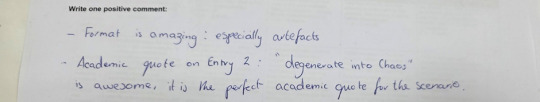 Write one positive comment:
- Format is amazing : especially artefacts
- Academic quote on Entry 2 : "degenerate into Chaos"
is awesome, it is the perfect academic quote for the scenario.